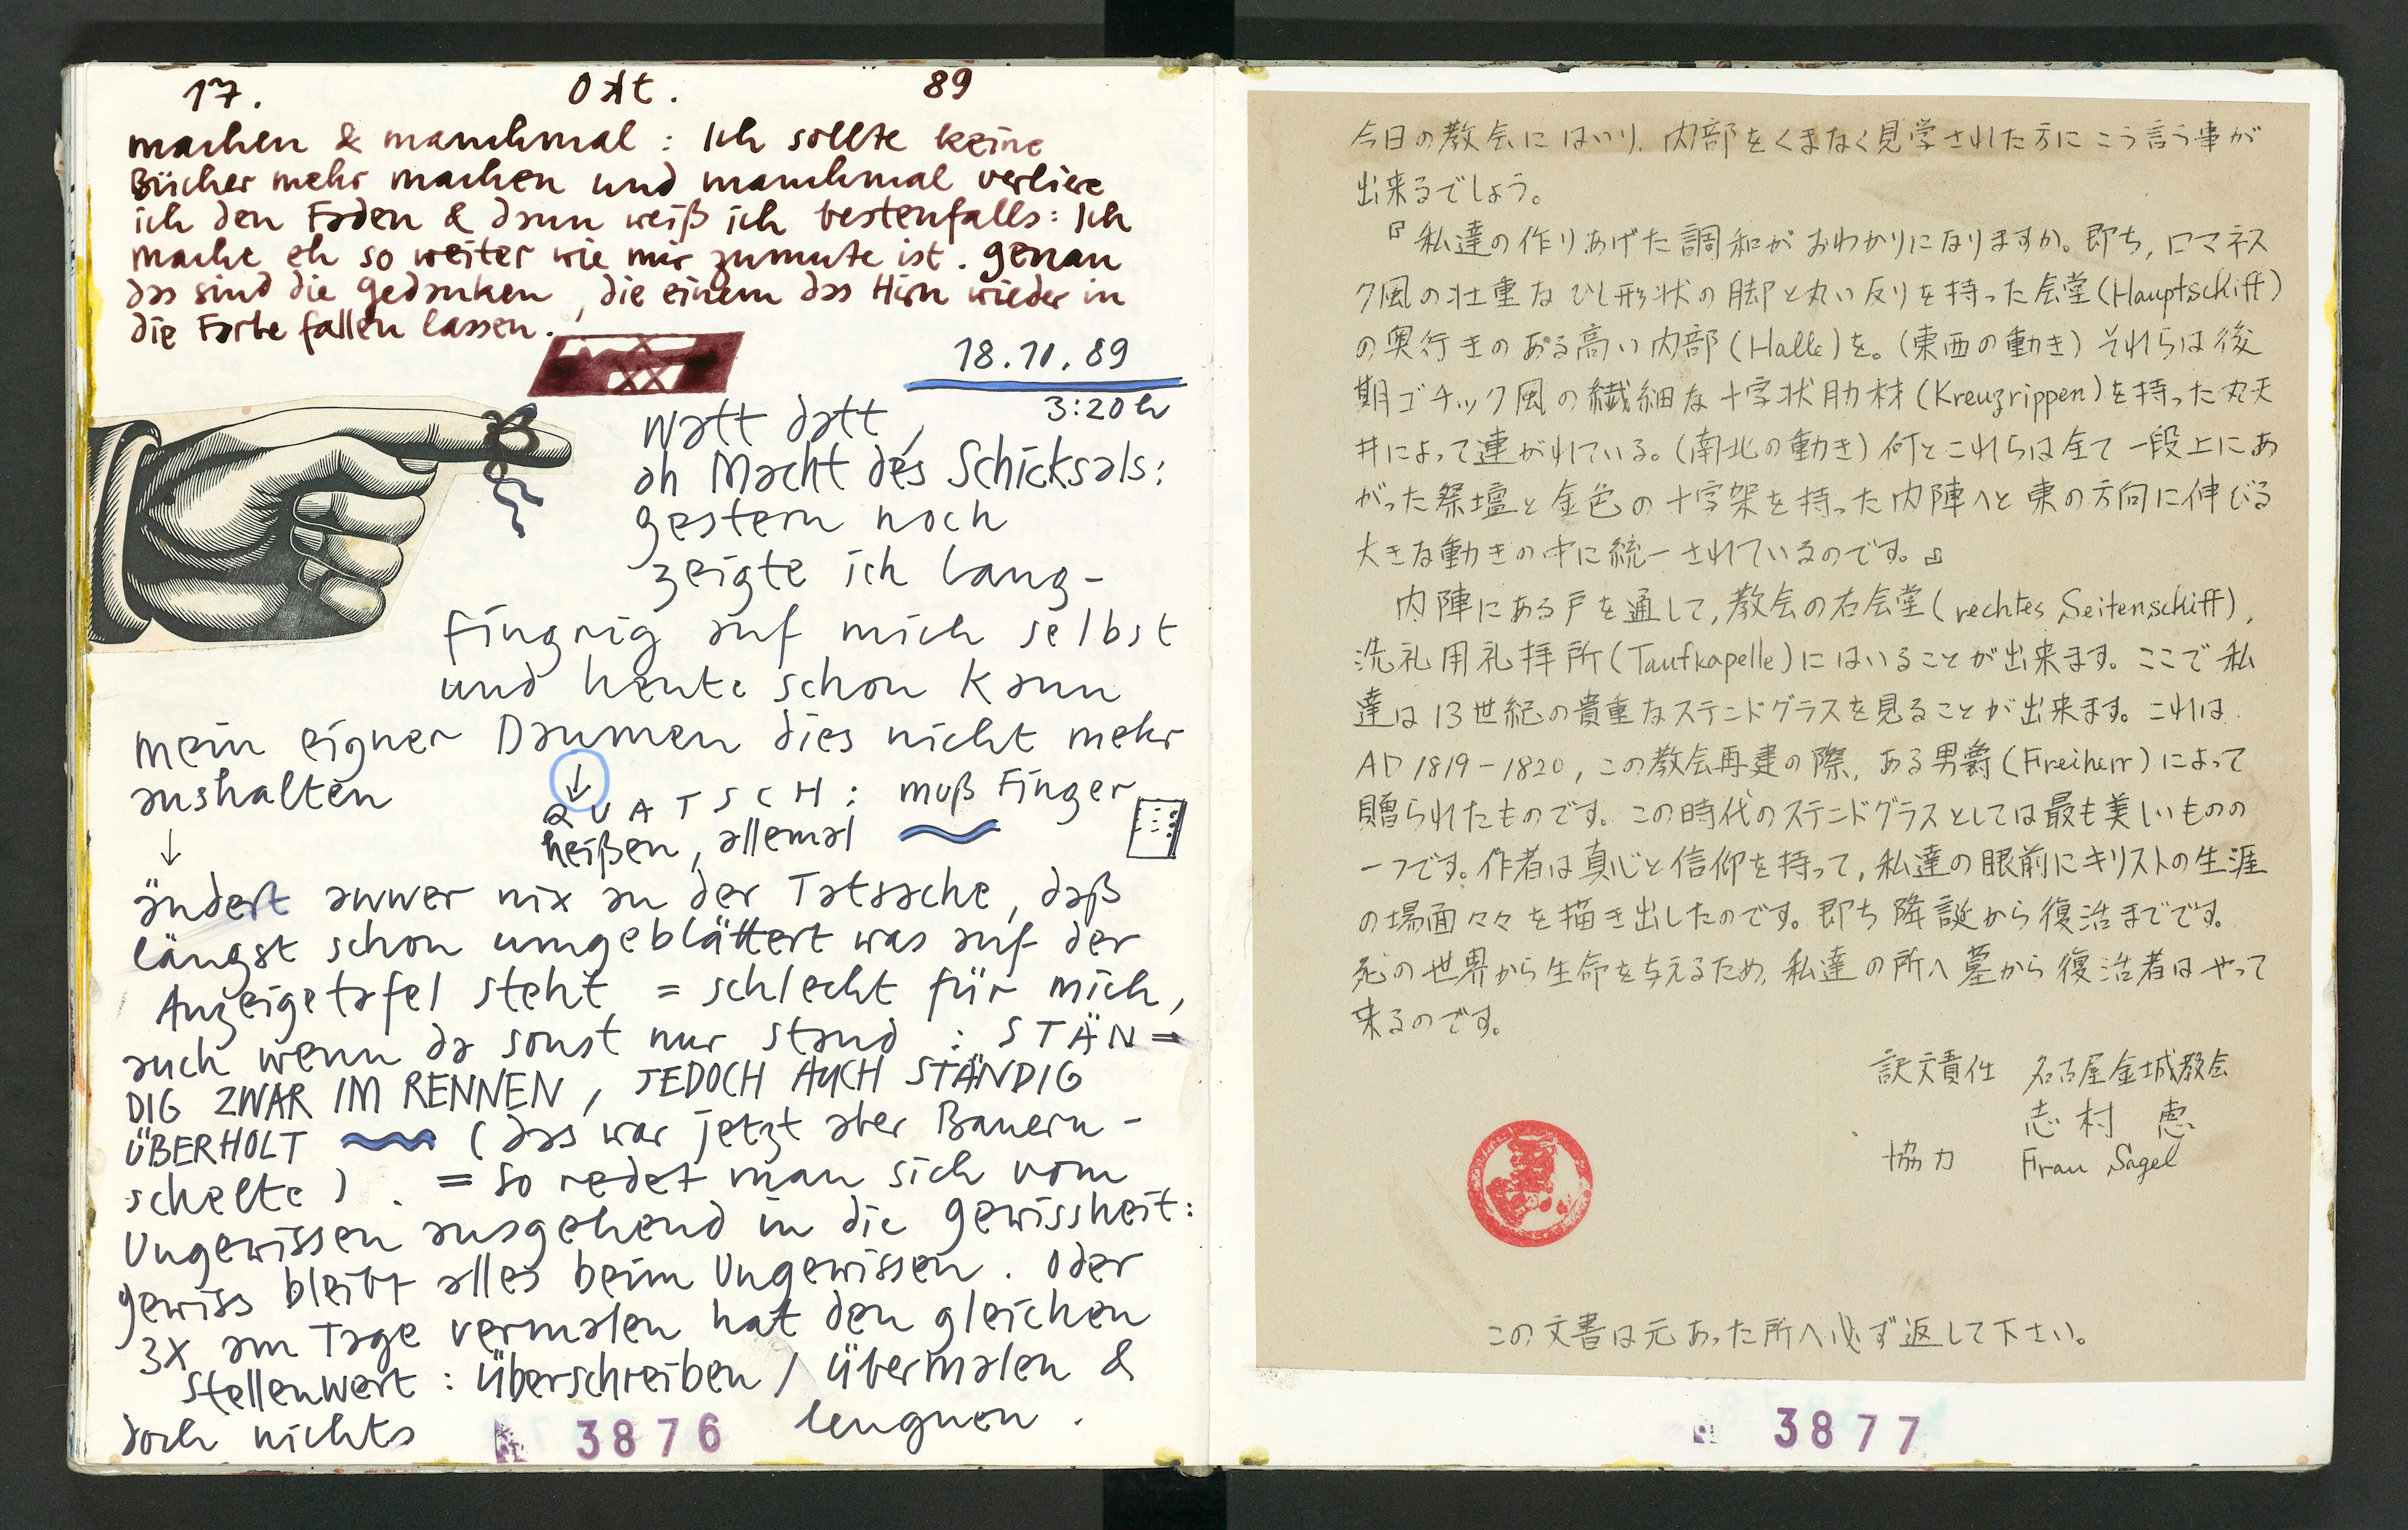 17. Okt. 89
machen & manchmal: Ich sollte keine
Bücher mehr machen und manchmal verliere
ich den Faden & dann weiß ich bestenfalls: Ich
mache eh so weiter wie mir zumute ist. genau
das sind die Gedanken, die einem das Hirn wieder in
die Farbe fallen lassen.
18.10.89
3:20 h
Watt datt,
oh Macht des Schicksals:
gestern noch
zeigte ich lang-
fingrig auf mich selbst
und heute schon kann
mein eigner Daumen dies nicht mehr
aushalten
↓
↓
QUATSCH: muß Finger
heißen, allemal
ändert awwer nix an der Tatsache, daß
längst schon umgeblättert was auf der
Anzeigetafel steht = schlecht für mich,
auch wenn da sonst nur stand: STÄN=
DIG ZWAR IM RENNEN, JEDOCH AUCH STÄNDIG
ÜBERHOLT (das war jetzt aber Bauern-
schelte). = So redet man sich vom
Ungewissen ausgehend in die Gewissheit:
gewiss bleibt alles beim Ungewissen. Oder
3x am Tage vermalen hat den gleichen
Stellenwert: Überschreiben / übermalen &
doch nichts leugnen.
3876
今日の教会にはいり、内部をくまなく見学された方にこう言う事が
出来るでしょう。
『私達の作りあげた調和がおわかりになりますか。即ち、ロマネス
ク風の壮重なひし形状の脚と丸い反りを持った会堂(Hauptschiff)
の奥行きのある高い内部(Halle)を。(東西の動き) それらは後
期ゴチック風の繊細な十字状肋材(Kreuzrippen)を持った丸天
井によって連がれている。(南北の動き) 何とこれらは全て一段上にあ
がった祭壇と金色の十字架を持った内陣へと東の方向に伸びる
大きな動きの中に統一されているのです。』
内陣にある戸を通して、教会の右会堂(rechtes Seitenschiff)、
洗礼用礼拝所(Taufkapelle)にはいることが出来ます。ここで私
達は13世紀の貴重なステンドグラスを見ることが出来ます。これは
AD 1819-1820, この教会再建の際、ある男爵(Freiherr)によって
贈られたものです。この時代のステンドグラスとしては最も美しいものの
一つです。作者は真心と信仰を持って、私達の眼前にキリストの生涯
の場面々々を描き出したのです。即ち降誕から復活までです。
死の世界から生命を与えるため、私達の所へ墓から復活者はやって
来るのです。
訳文責任 名古屋金城教会
志村 恵
協力 Frau Sagel
この文書は元あった所へ必ず返して下さい。
3877